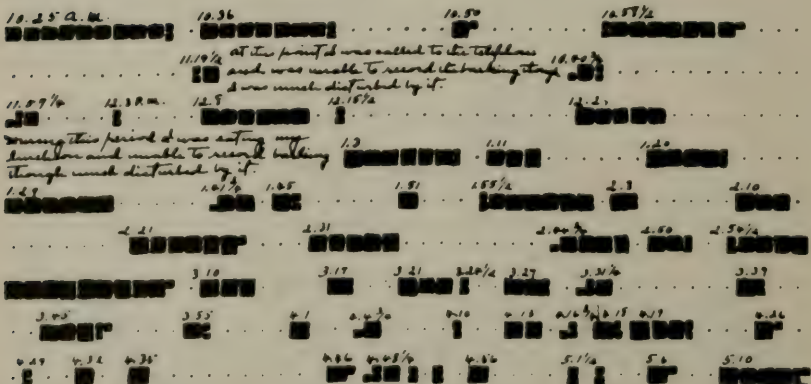 10.25 a.m. 10.36 10.50 10.58½
11.19½ at this point I was called to the telephone
and was unable to record the barking though
I was much disturbed by it.
11.59¼ 12.3 P.M. 12.8 12.15½ 12.25
During this period I was eating my
luncheon and unable to record barking
though much disturbed by it.
1.3 1.11 1.20
1.29 1.41¼ 1.45 1.51 1.55½ 2.3 2.10
2.21 2.31 2.44¾ 2.50 2.54½
3.10 3.17 3.21 3.24½ 3.27 3.31¼ 3.39
3.45 3.55 4.1 4.4¾ 4.10 4.13 4.16¾ 4.19 4.26
4.29 4.32 4.35 4.46 4.48¼ 4.56 5.1½ 5.6 5.10